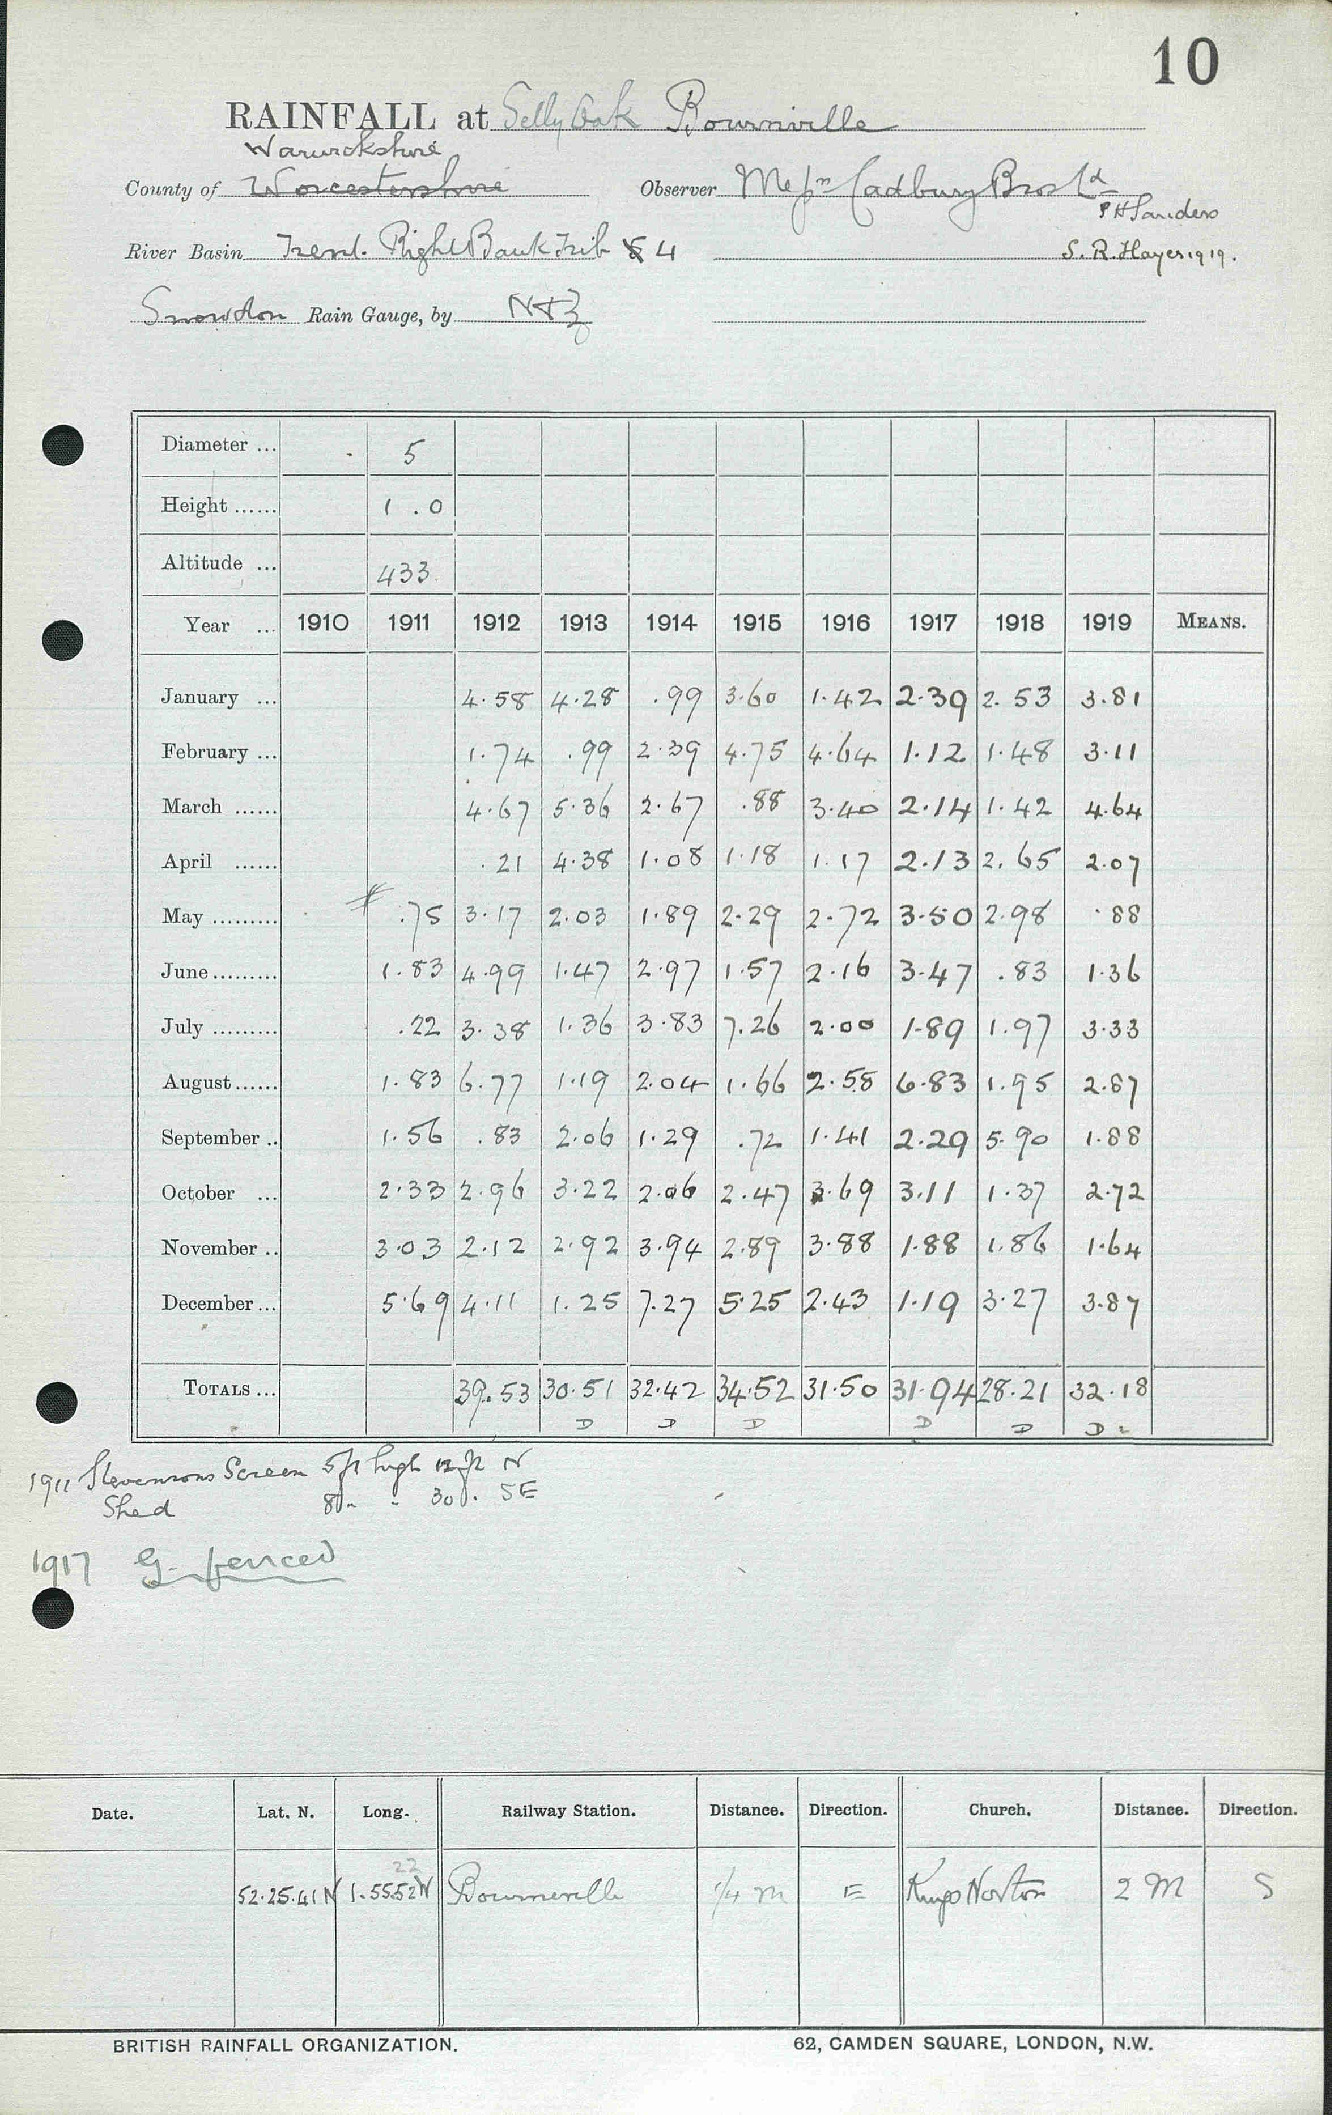 10
RAINFALL at Selly Oak Bournville
Warwickshire
County of Worcestershire Observer Messrs Cadbury Bros Ld
P H Sanders
River Basin Trent. Right Bank Trib 4
S. R. Hayes 1919.
Snowdon Rain Gauge, by N & Z
Diameter ... 5
Height ...... 1 . 0
Altitude ... 433
Year ... 1910 1911 1912 1913 1914 1915 1916 1917 1918 1919 MEANS.
January ... 4.58 4.28 .99 3.60 1.42 2.39 2.53 3.81
February ... 1.74 .99 2.39 4.75 4.64 1.12 1.48 3.11
March ...... 4.67 5.36 2.67 .88 3.40 2.14 1.42 4.64
April ...... .21 4.38 1.08 1.18 1.17 2.13 2.65 2.07
May ......... # .75 3.17 2.03 1.89 2.29 2.72 3.50 2.98 .88
June ......... 1.83 4.99 1.47 2.97 1.57 2.16 3.47 .83 1.36
July ......... .22 3.38 1.36 3.83 7.26 2.00 1.89 1.97 3.33
August ...... 1.83 6.77 1.19 2.04 1.66 2.58 6.83 1.95 2.87
September .. 1.56 .83 2.06 1.29 .72 1.41 2.29 5.90 1.88
October ... 2.33 2.96 3.22 2.06 2.47 3.69 3.11 1.37 2.72
November .. 3.03 2.12 2.92 3.94 2.89 3.88 1.88 1.86 1.64
December ... 5.69 4.11 1.25 7.27 5.25 2.43 1.19 3.27 3.87
TOTALS ... 39.53 30.51 32.42 34.52 31.50 31.94 28.21 32.18
D D D D D D
1911 Stevensons Screen 5ft high 12ft N
Shed 8 " " 30 . SE
1917 G. fenced
Date. Lat. N. Long. Railway Station. Distance. Direction. Church. Distance. Direction.
22
52.25.41 N 1.55.52 W Bourneville 1/4 m E Kings Norton 2 M S
BRITISH RAINFALL ORGANIZATION. 62, CAMDEN SQUARE, LONDON, N.W.